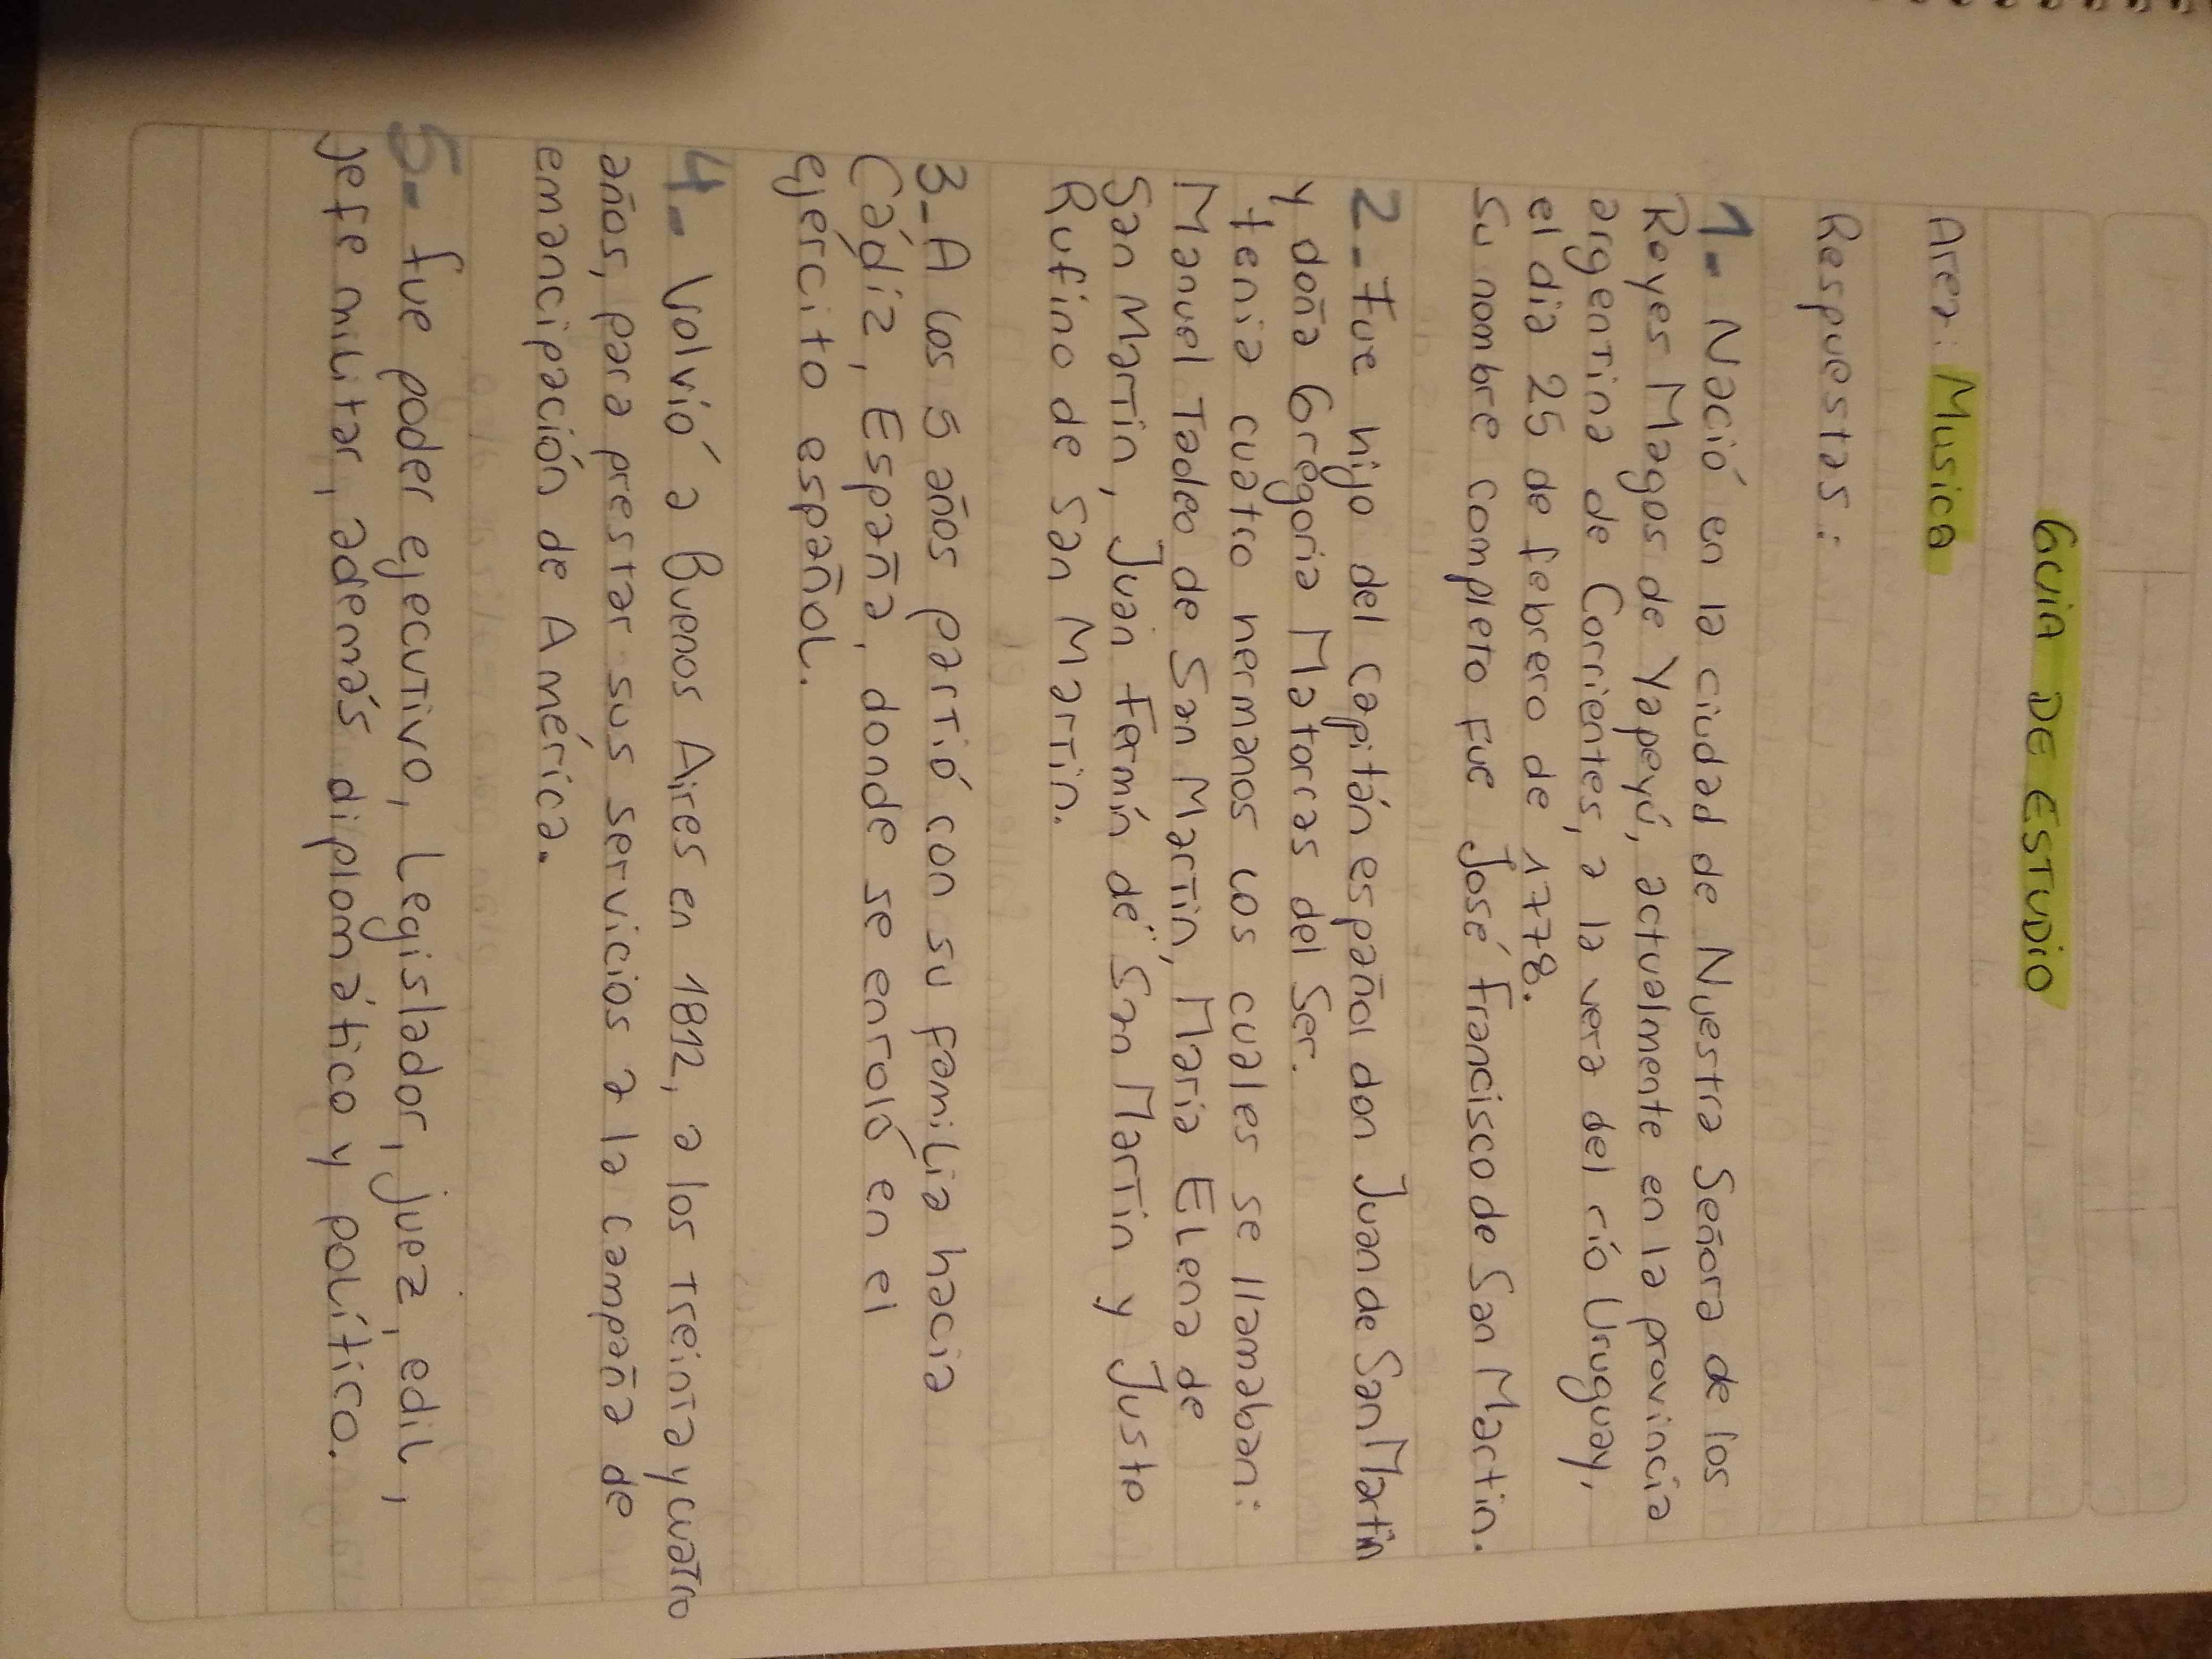 GUIA DE ESTUDIO
Area: Musica
Respuestas:
1- Nació en la ciudad de Nuestra Señora de los
Reyes Magos de Yapeyú, actualmente en la provincia
argentina de Corrientes, a la vera del río Uruguay,
el dia 25 de febrero de 1778.
Su nombre completo fue José Francisco de San Martin.
2- Fue hijo del capitán español don Juan de San Martin
y doña Gregoria Matorras del Ser.
tenia cuatro hermanos los cuales se llamaban:
Manuel Tadeo de San Martin, Maria Elena de
San Martin, Juan Fermín de San Martin y Justo
Rufino de San Martin.
3- A los 5 años partió con su familia hacia
Cádiz, España, donde se enroló en el
ejército español.
4- Volvió a Buenos Aires en 1812, a los treinta y cuatro
años, para prestar sus servicios a la campaña de
emancipación de América.
5- fue poder ejecutivo, Legislador, juez, edil,
jefe militar, además diplomático y político.